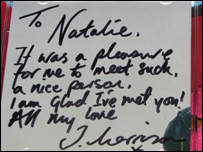 To Natalie.
It was a pleasure
for me to meet such.
a nice person.
I am glad I've met you!
All my love
J.